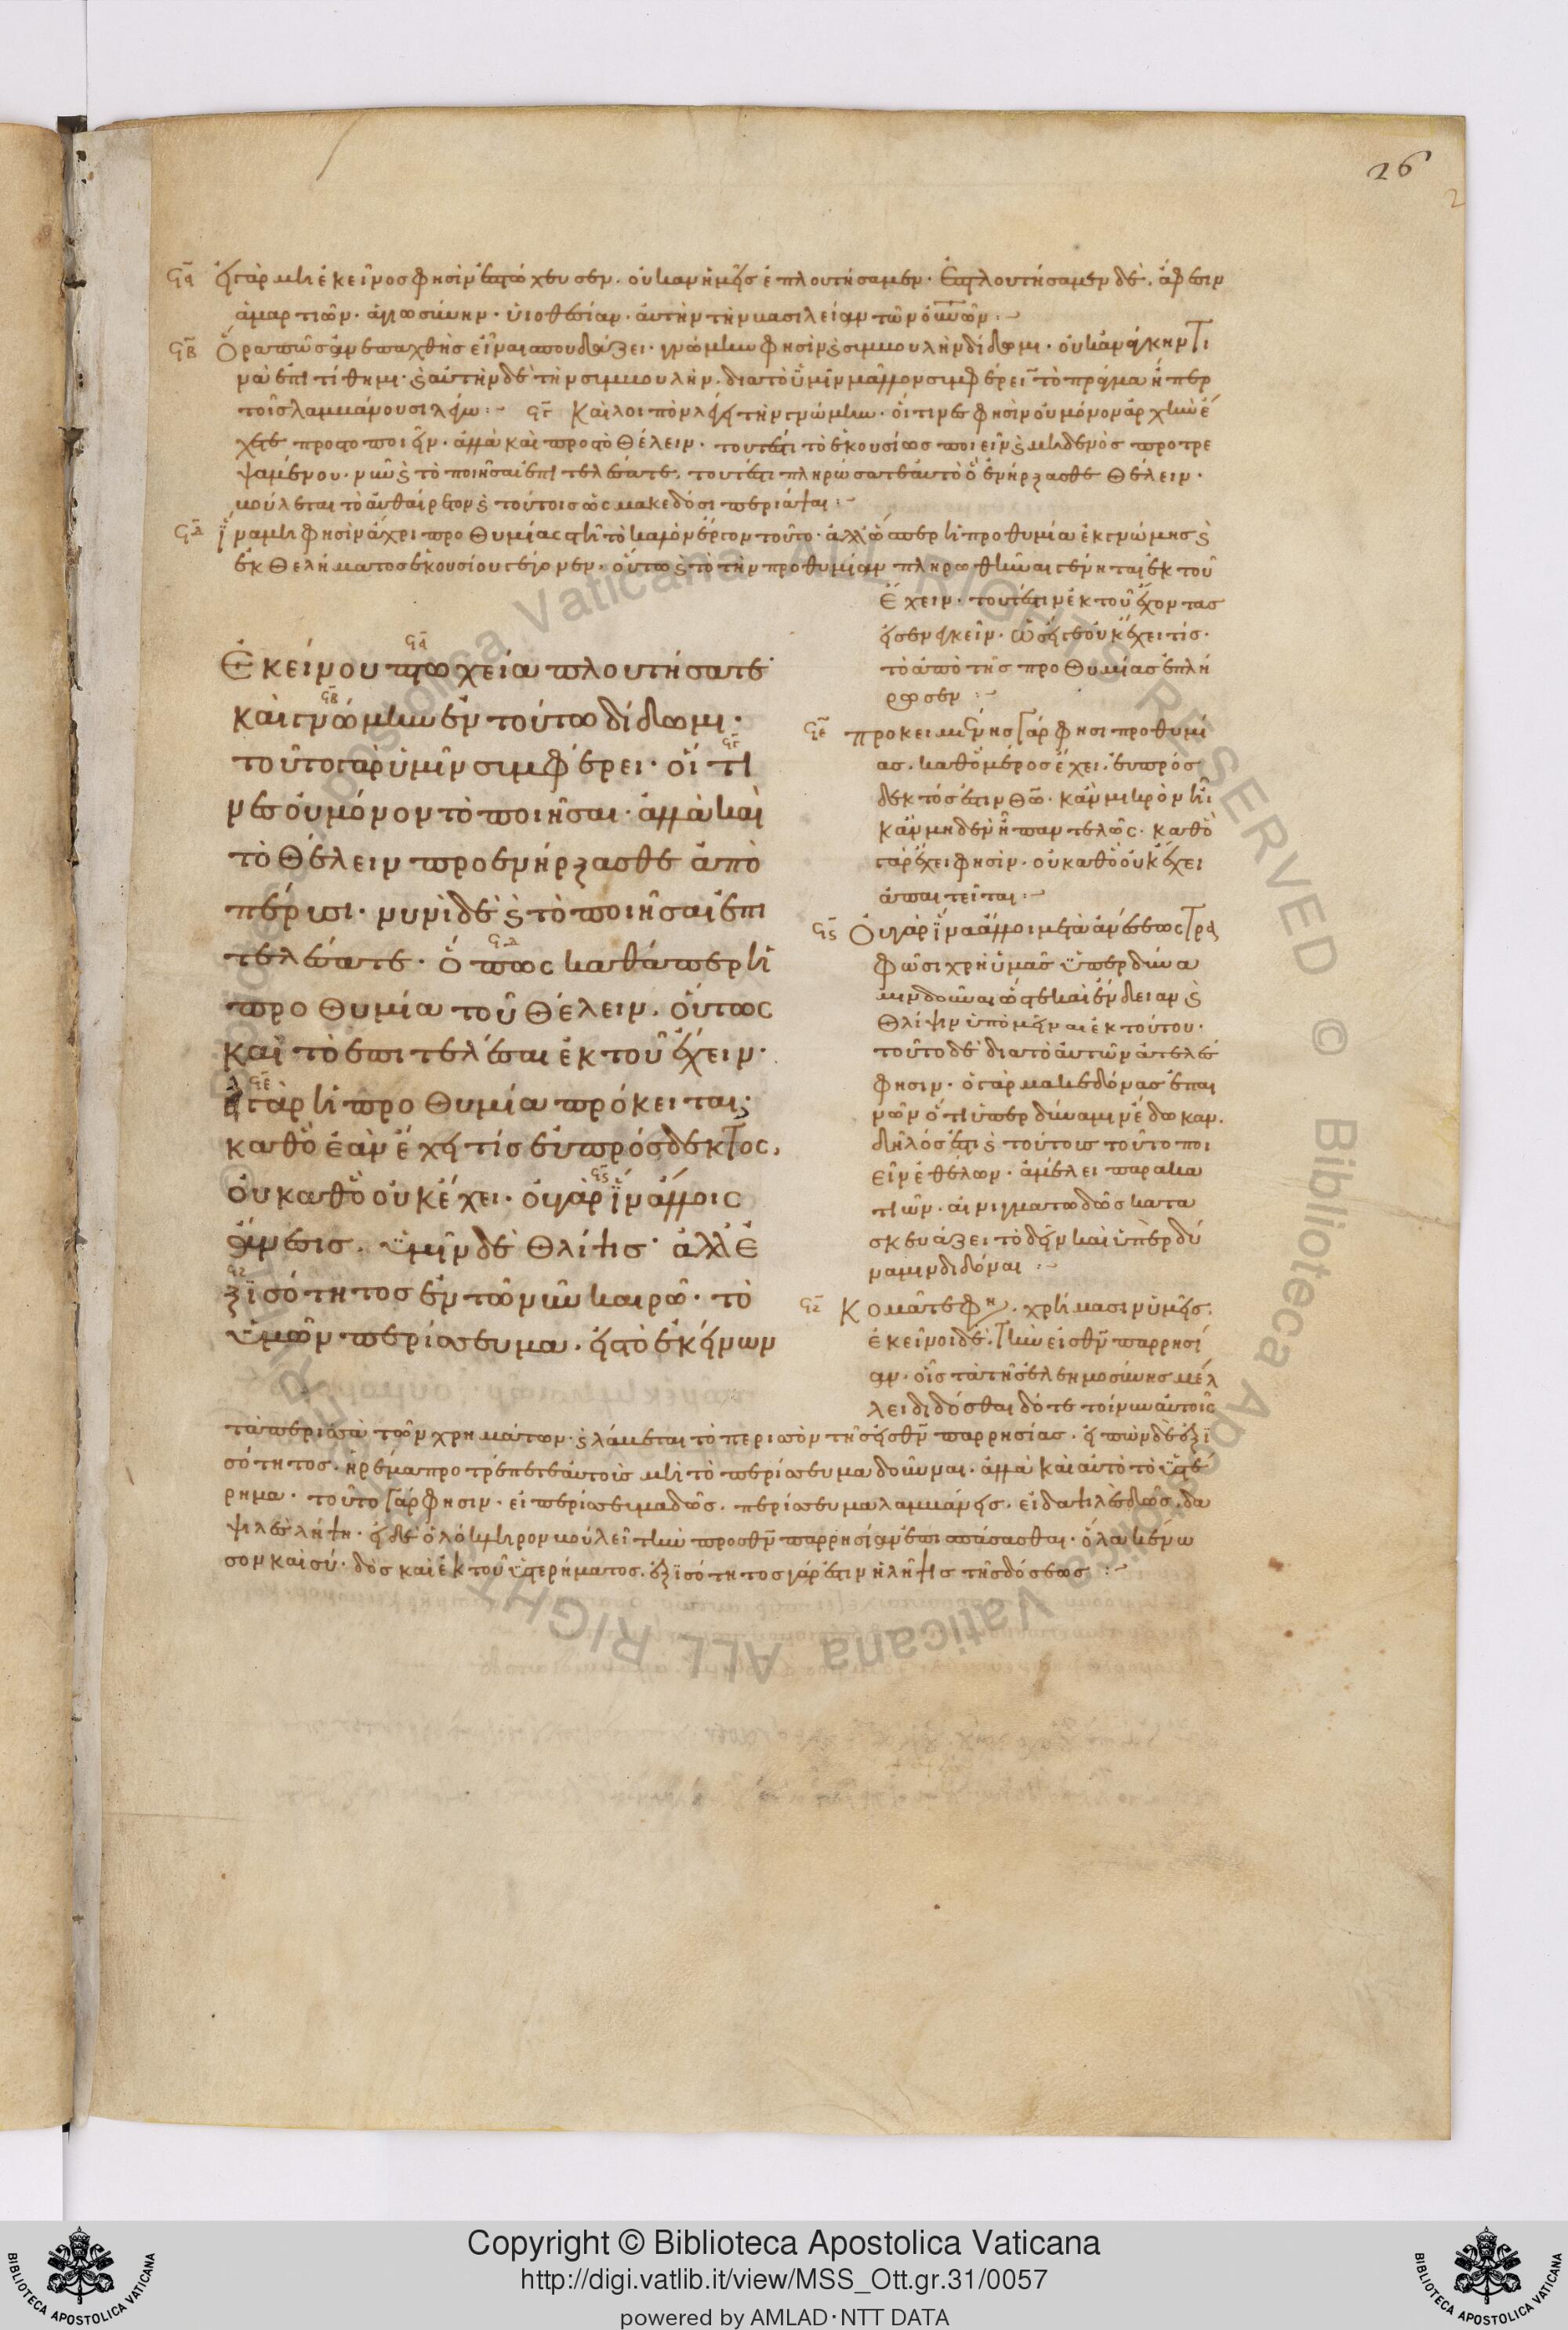 26
2
ϟα εἰ γὰρ μὴ ἐκεῖνος φησὶν ἐπτώχευσεν. οὐκ ἂν ἡμεῖς ἐπλουτήσαμεν. Ἐπλουτήσαμεν δὲ. ἄφεσιν
ἁμαρτιῶν. ἁγιωσύνην. υἱοθεσίαν. αὐτὴν τὴν βασιλείαν τῶν οὐνῶν :~
ϟβ Ὅρα πῶς ἀνεπαχθὴς εἶναι σπουδάζει. γνώμην φησὶν ϛ συμβουλὴν δίδωμι. οὐκ ἀνάγκην τι
νὰ ἐπιτίθημι. ϛ αὐτὴν δὲ τὴν συμβουλὴν. διὰ τὸ ὑμῖν μᾶλλον συμφέρειν τὸ πρᾶγμα ἤπερ
τοῖς λαμβάνουσι λέγω :~ ϟγ Καὶ λοιπὸν λέγει τὴν γνώμην. οἵτινες φησὶν οὐ μόνον ἀρχὴν ἔ
χετε πρὸς τὸ ποιεῖν. ἀλλὰ καὶ πρὸς τὸ θέλειν. τουτέστι τὸ ἑκουσίως ποιεῖν ϛ μηδενὸς προτρε
ψαμένου. νῦν ϛ τὸ ποιῆσαι ἐπιτελέσατε. τουτέστι πληρώσατε αὐτὸ ὃ ἐνήρξασθε θέλειν.
βούλεται τὸ αὐθαίρετον ϛ τούτοις ὡς μακεδόσι περιάψαι :~
ϟδ ἵνα μὴ φησὶν ἄχρι προθυμίας στῇ τὸ καλὸν ἔργον τοῦτο. ἀλλ' ὥσπερ ἡ προθυμία ἐκ γνώμης ϛ
ἐκ θελήματος ἑκουσίου γέγονεν. οὕτως ϛ τὸ τὴν προθυμίαν πληρωθῆναι γένηται ἐκ τοῦ
ἔχειν. τουτέστιν ἐκ τοῦ ἔχοντας
εἰσενεγκεῖν. ὥστε οὐκ ἔχει τίς.
τὸ ἀπὸ τῆς προθυμίας ἐπλή
ρωσεν :~
Ἐκείνου πτωχεία πλουτήσατε·
καὶ γνώμην ἐν τούτω δίδωμι·
τοῦτο γὰρ ὑμῖν συμφέρει· οἵ τι
νες οὐ μόνον τὸ ποιῆσαι. ἀλλὰ καὶ
τὸ θέλειν προενήρξασθε ἀπὸ
πέρυσι. νυνὶ δὲ ϛ τὸ ποιῆσαι ἐπι
τελέσατε. ὅπως καθάπερ ἡ
προθυμία τοῦ θέλειν. οὕτως
καὶ τὸ ἐπιτελέσαι ἐκ τοῦ ἔχειν.
εἰ γὰρ ἡ προθυμία πρόκειται,
καθὸ ἐὰν ἔχη τίς εὐπρόσδεκτος,
οὐ καθὸ οὐκ ἔχει. οὐ γὰρ ἵνα ἄλλοις
ἄνεσις. ὑμῖν δὲ θλίψις. ἀλλ' ἐ
ξ ἰσότητος ἐν τῶ νῦν καιρῶ. τὸ
ὑμῶν περίσσευμα. εἰς τὸ ἐκείνων
ϟε προκειμένης γάρ φησι προθυμί
ας. καθὸ μέρος ἔχει. εὐπρόσ
δεκτός ἐστιν θῶ. κἂν μικρὸν ἦ
κἂν μηδὲν ἦ παντελῶς. καθὸ
γὰρ ἔχει φησὶν. οὐ καθὸ οὐκ ἔχει
ἀπαιτεῖται :~
ϟϛ Οὐ γὰρ ἵνα ἄλλοι μετὰ ἀνέσεως τρα
φῶσι χρὴ ὑμᾶς ὑπὲρ δύνα
μιν δοῦναι ὥστε καὶ ἔνδειαν ϛ
θλίψιν ὑπομεῖναι ἐκ τούτου.
τοῦτο δὲ διὰ τὸ αὐτῶν ἀτελές
φησιν. ὁ γὰρ μακεδόνας ἐπαι
νῶν ὅτι ὑπὲρ δύναμιν ἔδωκαν.
δῆλός ἐστι ϛ τούτοις τοῦτο ποι
εῖν ἐθέλων. ἀμέλει παρακα
τιὼν. αἰνιγματωδῶς κατα
σκευάζει τὸ δεῖν καὶ ὑπὲρ δύ
ναμιν διδόναι :~
ϟζ Κομᾶτε φη. χρήμασιν ὑμεῖς.
ἐκεῖνοι δὲ. τὴν εἰς θν παρρησί
αν. οἷς τὰ τῆς ἐλεημοσύνης μέλ
λει δίδοσθαι δότε τοίνυν αὐτοῖς
τὰ περισσὰ τῶν χρημάτων. ϛ λάβεται τὸ περισσὸν τῆς εἰς θν παρρησίας. εἰπὼν δὲ ἐξ ἰ
σότητος. ἠρέμα προτρέπεται αὐτοὺς μὴ τὸ περίσσευμα δοῦναι. ἀλλὰ καὶ αὐτὸ τὸ ὑστέ
ρημα. τοῦτο γάρ φησιν. εἰ περίσσευμα δῶς. περίσσευμα λαμβάνεις. εἰ δαψιλὲς δῶς. δα
ψιλὲς λήψη. εἰ δὲ ὁλόκληρον βούλει τὴν πρὸς θν παρρησίαν ἐπισπάσασθαι. ὅλα κένω
σον καὶ σύ. δὸς καὶ ἐκ τοῦ ὑστερήματος. ἐξ ἰσότητος γάρ ἐστιν ἡ λῆψις τῆς δόσεως :~
Copyright © Biblioteca Apostolica Vaticana
http://digi.vatlib.it/view/MSS_Ott.gr.31/0057
powered by AMLAD·NTT DATA